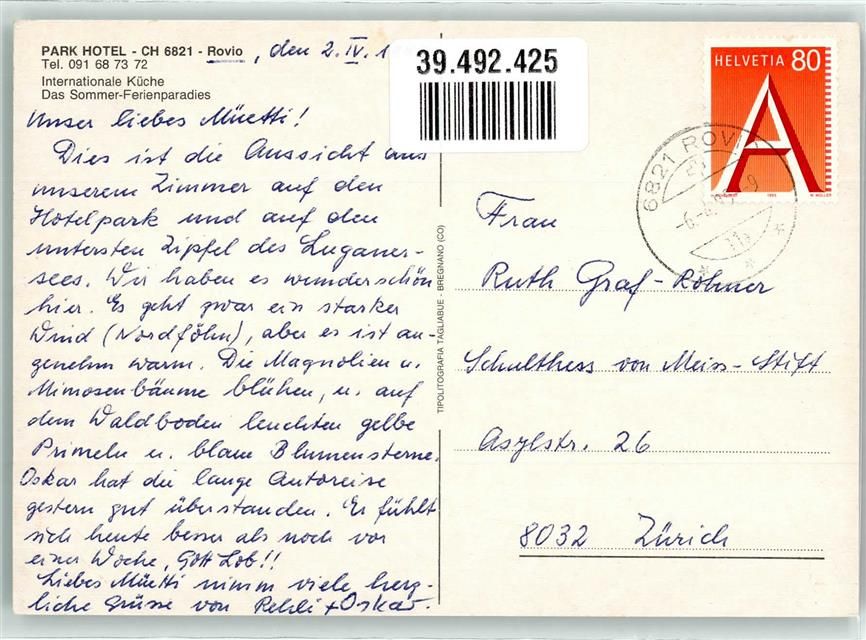 PARK HOTEL - CH 6821 - Rovio, den 2. IV. 1
Tel. 091 68 73 72
Internationale Küche
Das Sommer-Ferienparadies
Unser liebes Müetti!
Dies ist die Aussicht aus
unserem Zimmer auf den
Hotelpark und auf den
untersten Zipfel des Luganer-
sees. Wir haben es wunderschön
hier. Es geht zwar ein starker
Wind (Nordföhn), aber es ist an-
genehm warm. Die Magnolien u.
Mimosenbäume blühen, u. auf
dem Waldboden leuchten gelbe
Primeln u. blaue Blumensterne.
Oskar hat die lange Autoreise
gestern gut überstanden. Er fühlt
sich heute besser als noch vor
einer Woche, Gott Lob!!
Liebes Müetti nimm viele herz-
liche Grüsse von + Oskar.
TIPOLITOGRAFIA TAGLIABUE - BREGNANO (CO)
39.492.425
HELVETIA 80
A
6821 ROVIO
Frau
Ruth Graf-Rohner
Schulthess von Meiss-Stift
Asylstr. 26
8032 Zürich